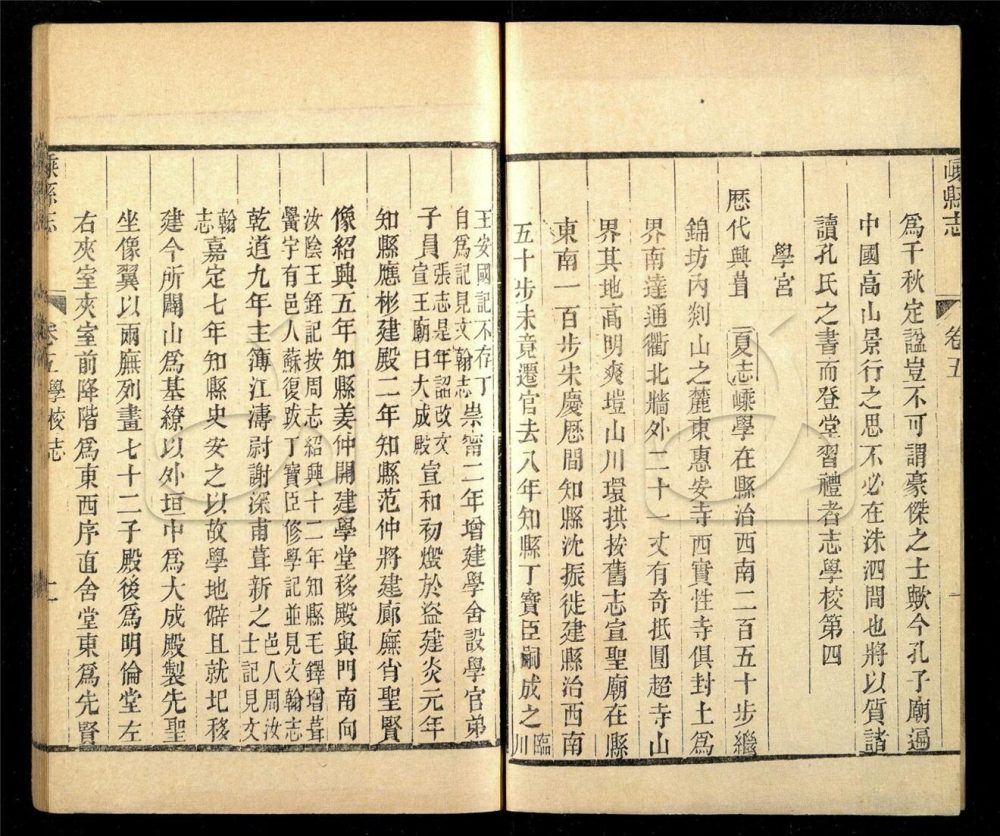 嵊縣志
卷五
為千秋定諡豈不可謂豪傑之士歟今孔子廟遍
中國高山景行之思不必在洙泗間也將以質諸
讀孔氏之書而登堂習禮者志學校第四
學宮
歷代興葺 夏志嵊學在縣治西南二百五十步繼
錦坊內剡山之麓東惠安寺西實性寺俱封土為
界南達通衢北牆外二十一丈有奇抵圓超寺山
界其地高明爽塏山川環拱按舊志宣聖廟在縣
東南一百步宋慶曆間知縣沈振徙建縣治西南
五十步未竟遷官去八年知縣丁寶臣嗣成之臨川
王安國記不存丁自為記見文翰志崇甯二年增建學舍設學官弟
子員張志是年詔改文宣王廟曰大成殿宣和初燬於盜建炎元年
知縣應彬建殿二年知縣范仲將建廊廡肖聖賢
像紹興五年知縣姜仲開建學堂移殿與門南向
汝陰王銍記按周志紹興十二年知縣毛鐸增葺
黌宇有邑人蘇復跋丁寶臣修學記並見文翰志
乾道九年主簿江濤尉謝深甫葺新之邑人周汝士記見文
翰志嘉定七年知縣史安之以故學地僻且就圮移
建今所闢山為基繚以外垣中為大成殿製先聖
坐像翼以兩廡列畫七十二子殿後為明倫堂左
右夾室夾室前降階為東西序直舍堂東為先賢
嵊縣志
卷五 學校志